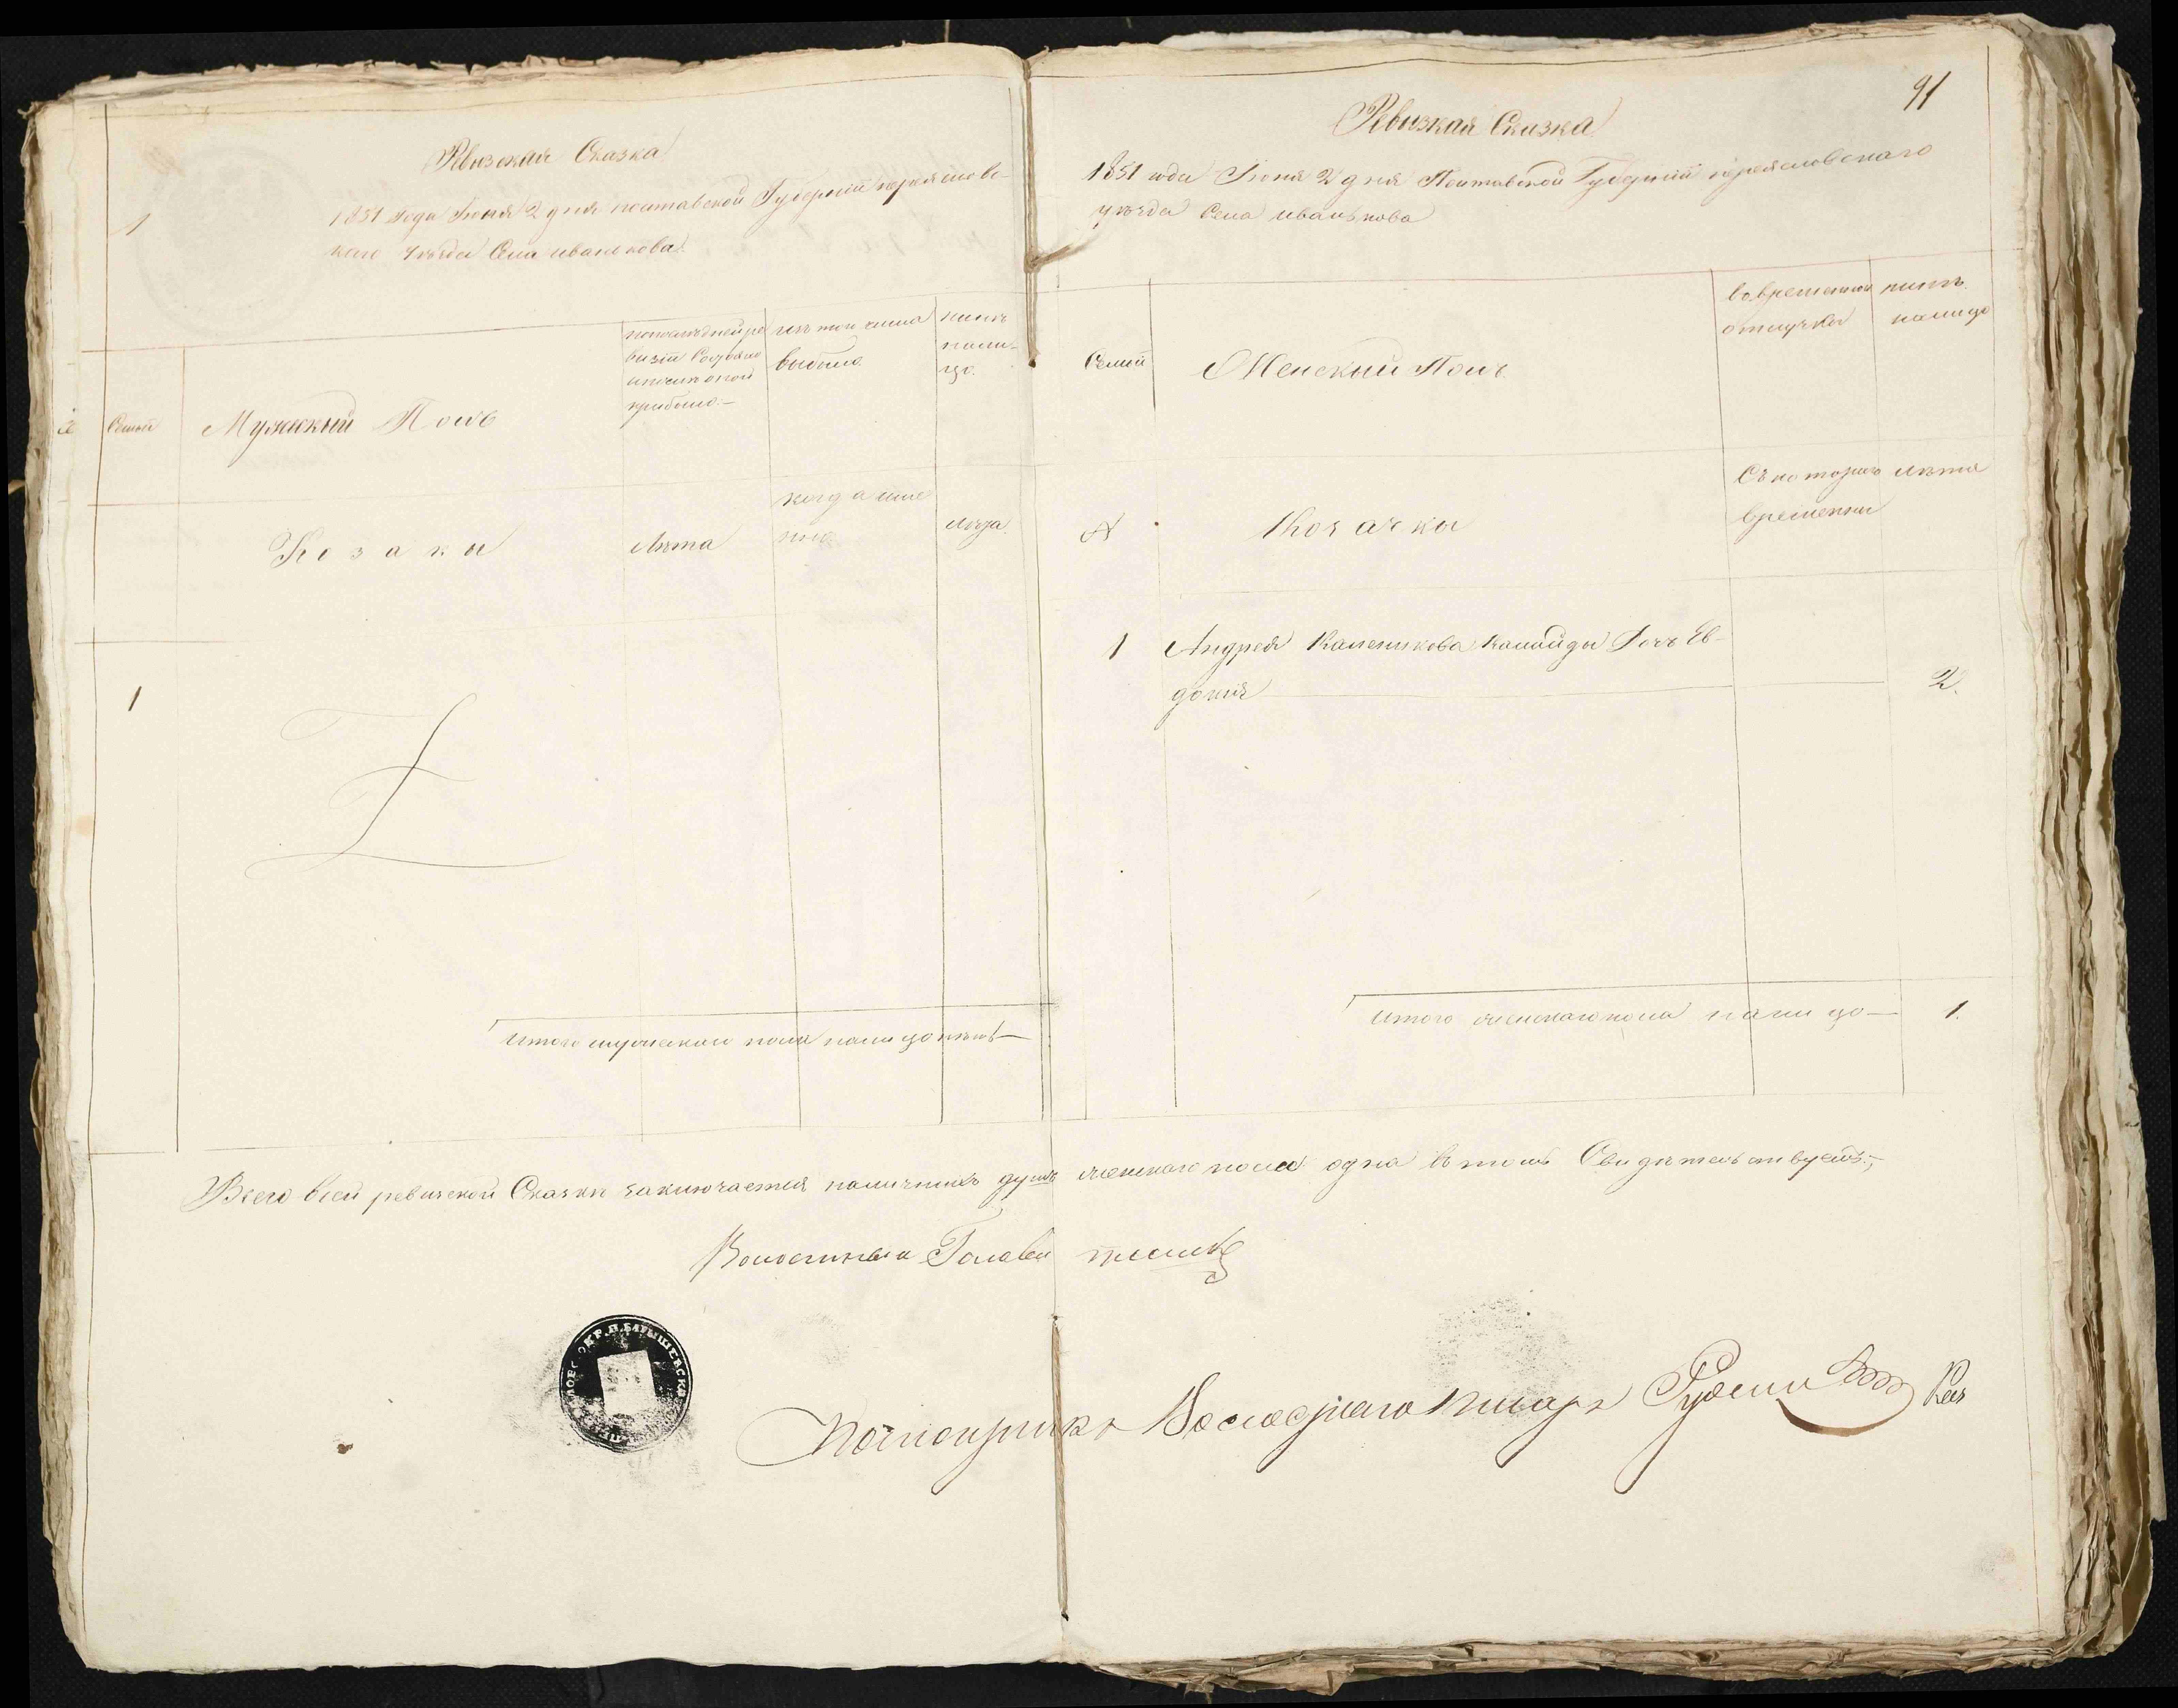 Ревизская Сказка
1851 года Июня 2 дня полтавской Губернии переяславс-
каго уѣзда Села иванькова
1
Семьи
Мужеский Полъ
попослѣдней ре
визіи состояло
ипослѣ оной
прибыло:—
изъ того числа
выбыло
нынѣ
нали-
цо.
Козаки
Лѣта
когда име
нно
лѣта
1
Итого мужескаго пола налицо нѣтъ—
91
Ревизкая Сказка
1851 года Июня 2 дня Полтавской Губернии переяславскаго
уѣзда Села иванькова
Семьи
Женский Полъ
вовременной
отлучки
нынѣ
налицо
№
Козачки
Съкотораго
времени
лѣта
1 Андрея Каленикова Дочь Ев-
докия 2.
Итого женскаго пола налицо— 1.
Всего всей ревизской Сказки заключается наличныхъ душъ женскаго пола одна въ томъ Свидѣтельствуетъ,
Волостный Голова
Волостнаго Писаря